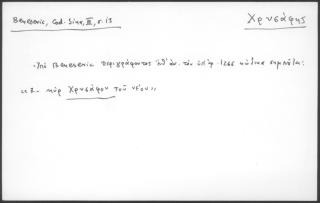 Benesević, Cod. Sina, III, σ. 13
Χρυσάφης
Ὑπὸ Benesević περιγράφοντος ὑπ' ἀρ. τὸν ὑπ' ἀρ. 1266 κώδικα σημειοῦται:
«Σ. κὺρ Χρυσάφου τοῦ νέου»